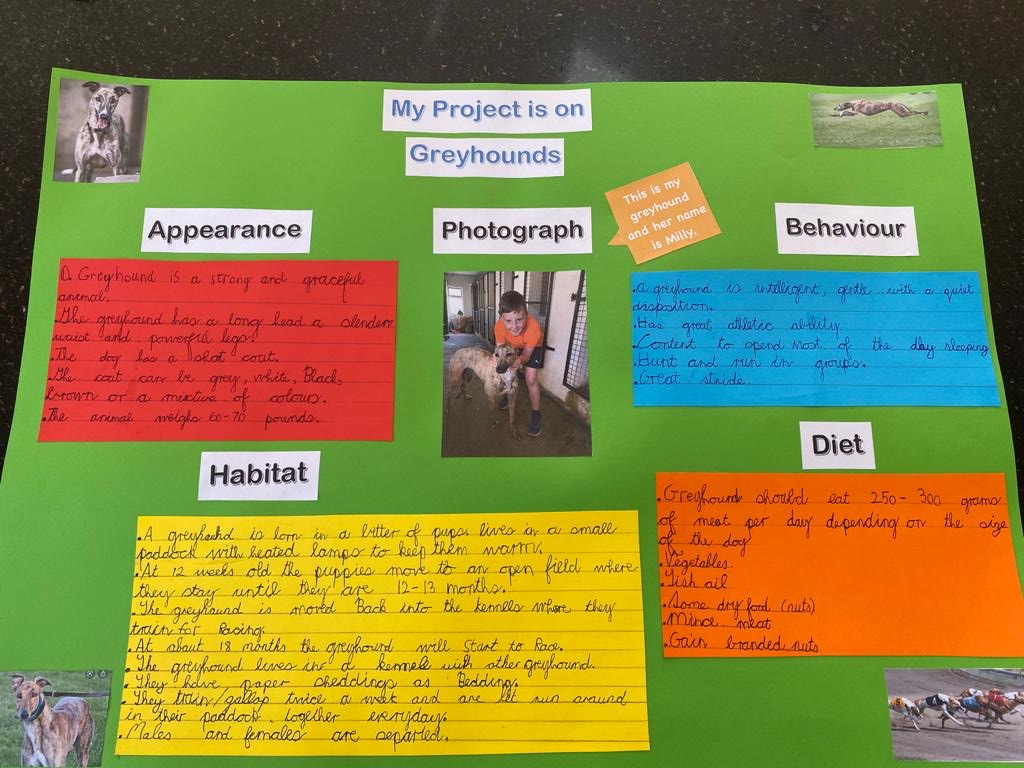 My Project is on
Greyhounds
This is my
greyhound
and her name
is Milly.
Appearance
D. Greyhound is a strong and graceful
animal.
.The greyhound has a long head a slender
waist and powerful legs.
.The dog has a shot coat.
.The coat can be grey, white, Black,
brown or a mixture of colours.
.The animal weighs 60-70 pounds.
Photograph
Behaviour
.a greyhound is intelligent, gentle with a quiet
disposition.
.Has great athletic ability.
.Content to spend most of the day sleeping
.Hunt and run in groups.
.Great stride.
Habitat
.A greyhound is born in a litter of pups. lives in a small
paddock with heated lamps to keep them warm.
.At 12 weeks old the puppies move to an open field where
they stay until they are 12-13 months.
.The greyhound is moved Back into the kennels where they
train for Racing.
.At about 18 months the greyhound will Start to Race.
.The greyhound lives in a kennels with other greyhound.
.They have paper sheddings as Bedding.
.They train/gallop twice a week and are let run around
in their paddock together everyday.
.Males and females are separted.
Diet
.Greyhound should eat 250-300 grams
of meat per day depending on the size
of the dog
.Vegetables
.Fish oil
.Some dry food (nuts)
.Mince meat
.Gain branded nuts